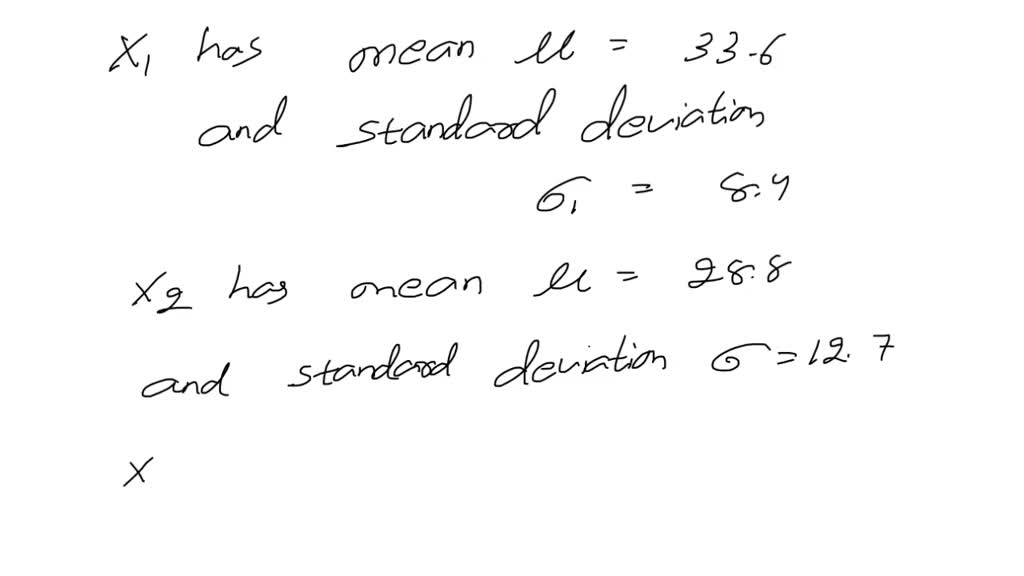 X₁ has mean μ = 33.6
and standard deviation
σ₁ = 8.4
X₂ has mean μ = 28.8
and standard deviation σ = 12.7
X